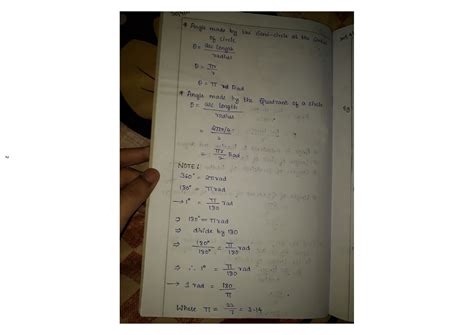 * Angle made by the Semi-circle at the Center
of circle
θ = arc length / radius
θ = πr / r
θ = π rad
* Angle made by the Quadrant of a circle
θ = arc length / radius
= 2πr/4 / r
= π / 2 Rad
NOTE:
360° = 2π rad
180° = π rad
→ 1° = π / 180 rad
⇒ 180° = π rad
⇒ divide by 180
⇒ 180° / 180° = π / 180 rad
⇒ ∴ 1° = π / 180 rad
→ 1 rad = 180 / π
Where π = 22 / 7 = 3.14